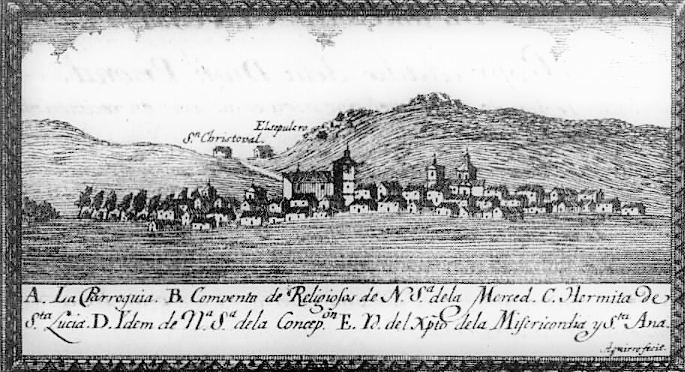 El sepulcro
S.ⁿ Christoval.
A. La Parroquia. B. Comvento de Religiosos de N. S.ª de la Merced. C. Hermita de
S.ta Lucia. D. Idem de N.ª S.ª de la Concep.on E. Y. del Xpto de la Misericordia y S.ta Ana.
Aguirre fecit.